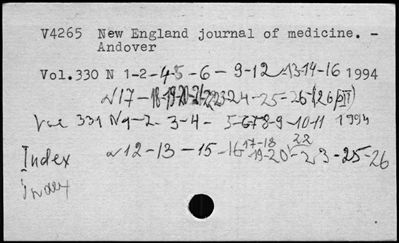 V4265 New England journal of medicine. -
Andover
Vol.330 N 1-2-4-5-6-9-12-13-14-16 1994
N17-18-19-20-21-22-23-24-25-26-(26pII)
Vol 331 N1-2-3-4-5-6-7-8-9-10-11 1994
N12-13-15-16-17-18-19-20-22-23-25-26
Index
Index